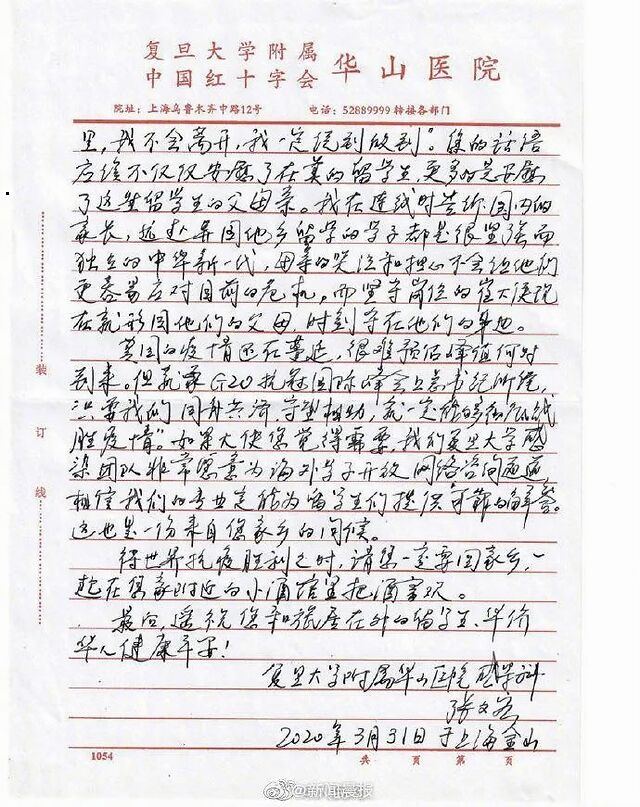 复旦大学附属
中国红十字会 华山医院
院址：上海乌鲁木齐中路12号 电话：52889999 转接各部门
里，我不会离开，我一定说到做到”。您的话语
应该不仅仅安慰了在英的留学生，更多的是安慰
了这些留学生的父母亲。我在连线时告诉国内的
家长，远赴异国他乡留学的学子都是很坚强而
独立的中华新一代，母亲的哭泣和担心不会给他们
更容易应对目前的危机，而坚守岗位的崔大使现
在就形同他们的父母，时刻守在他们的身边。
英国的疫情还在蔓延，很难预估峰值何时
到来。但就像G20抗冠国际峰会上总书记所说，
只要我们同舟共济、守望相助，就一定能够
战胜疫情”如果大使您觉得需要，我们复旦大学感
染团队非常愿意为海外学子开放网络咨询通道，
相信我们的专业定能为留学生们提供可靠的解答。
这也是一份来自您家乡的问候。
待世界抗疫胜利之时，请您一定要回家乡，一
起在您家附近的小酒馆里把酒言欢。
最后，遥祝您和旅居在外的留学生、华侨
华人健康平安！
复旦大学附属华山医院感染科
张文宏
2020年3月31日于上海金山
装
订
线
1054 共 页 第 页
@新闻晨报